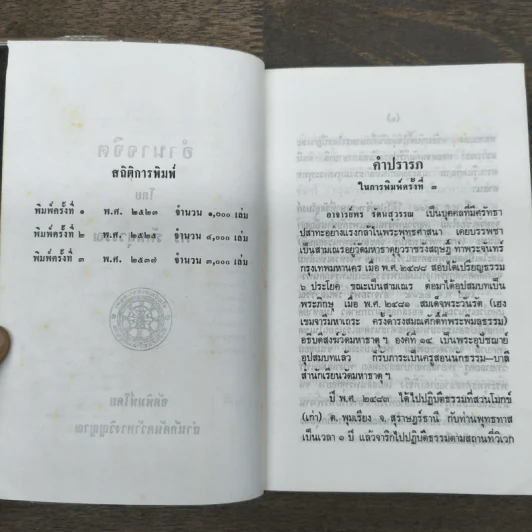 สถิติการพิมพ์
พิมพ์ครั้งที่ ๑ พ.ศ. ๒๕๒๓ จำนวน ๑,๐๐๐ เล่ม
พิมพ์ครั้งที่ ๒ พ.ศ. ๒๕๒๕ จำนวน ๔,๐๐๐ เล่ม
พิมพ์ครั้งที่ ๓ พ.ศ. ๒๕๓๗ จำนวน ๓,๐๐๐ เล่ม
คำปรารภ
ในการพิมพ์ครั้งที่ ๓
อาจารย์พร รัตนสุวรรณ เป็นบุคคลที่มีศรัทธา
ปสาทะอย่างแรงกล้าในพระพุทธศาสนา เคยบรรพชา
เป็นสามเณรอยู่วัดมหาธาตุยุวราชรังสฤษฎิ์ ท่าพระจันทร์
กรุงเทพมหานคร เมื่อ พ.ศ. ๒๔๗๘ สอบได้เปรียญธรรม
๖ ประโยค ขณะเป็นสามเณร ต่อมาได้อุปสมบทเป็น
พระภิกษุ เมื่อ พ.ศ. ๒๔๘๑ สมเด็จพระวันรัต (เฮง
เขมจารีมหาเถระ ครั้งดำรงสมณศักดิ์ที่พระพิมลธรรม)
อธิบดีสงฆ์วัดมหาธาตุ ฯ องค์ที่ ๑๔ เป็นพระอุปัชฌาย์
อุปสมบทแล้ว ก็รับภาระเป็นครูสอนนักธรรม–บาลี
สำนักเรียนวัดมหาธาตุ ฯ
ปี พ.ศ. ๒๔๘๓ ได้ไปปฏิบัติธรรมที่สวนโมกข์
(เก่า) ต. พุมเรียง จ. สุราษฎร์ธานี กับท่านพุทธทาส
เป็นเวลา ๑ ปี แล้วจาริกไปปฏิบัติธรรมตามสถานที่วิเวก